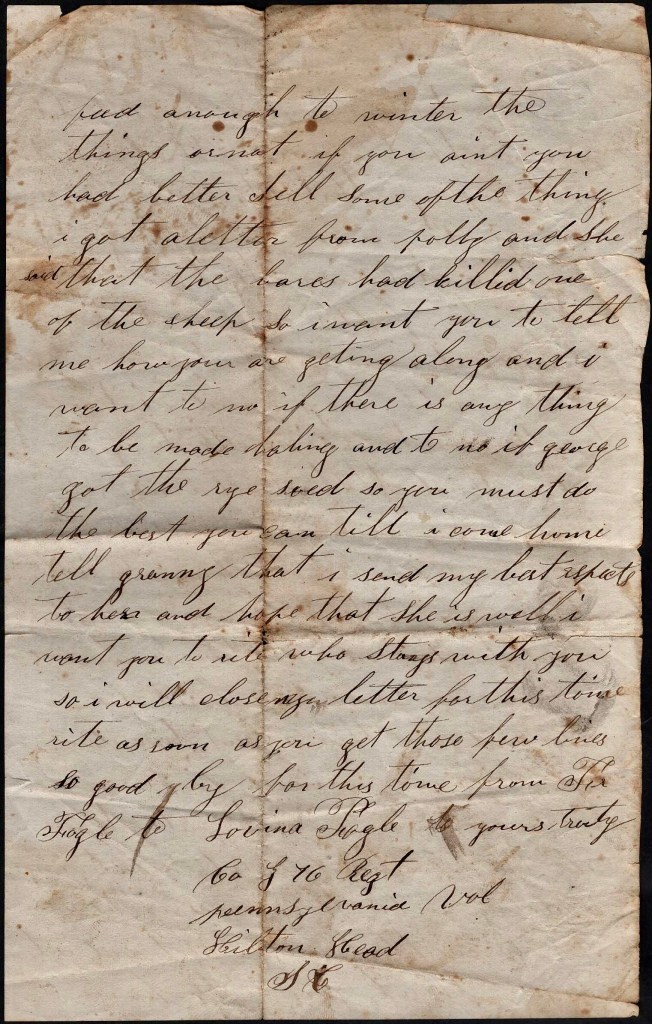 feed anough to winter the
things or not if you aint you
had better sell some of the things
i got a letter from polly and she
said that the bares had killid one
of the sheep so i want you to tell
me how your are geting along and i
want to no if there is any thing
to be made haling and to no if george
got the rye soed so you must do
the best you can till i come home
tell granny that i send my best respects
to her and hope that she is well i
want you to rite who stays with you
so i will close my letter for this time
rite as soon as you get those few lines
so good by for this time from
Fogle to Lovina Fogle to yours truly
Co G 76 Regt
pennsylvania Vol
Hilton Head
S C